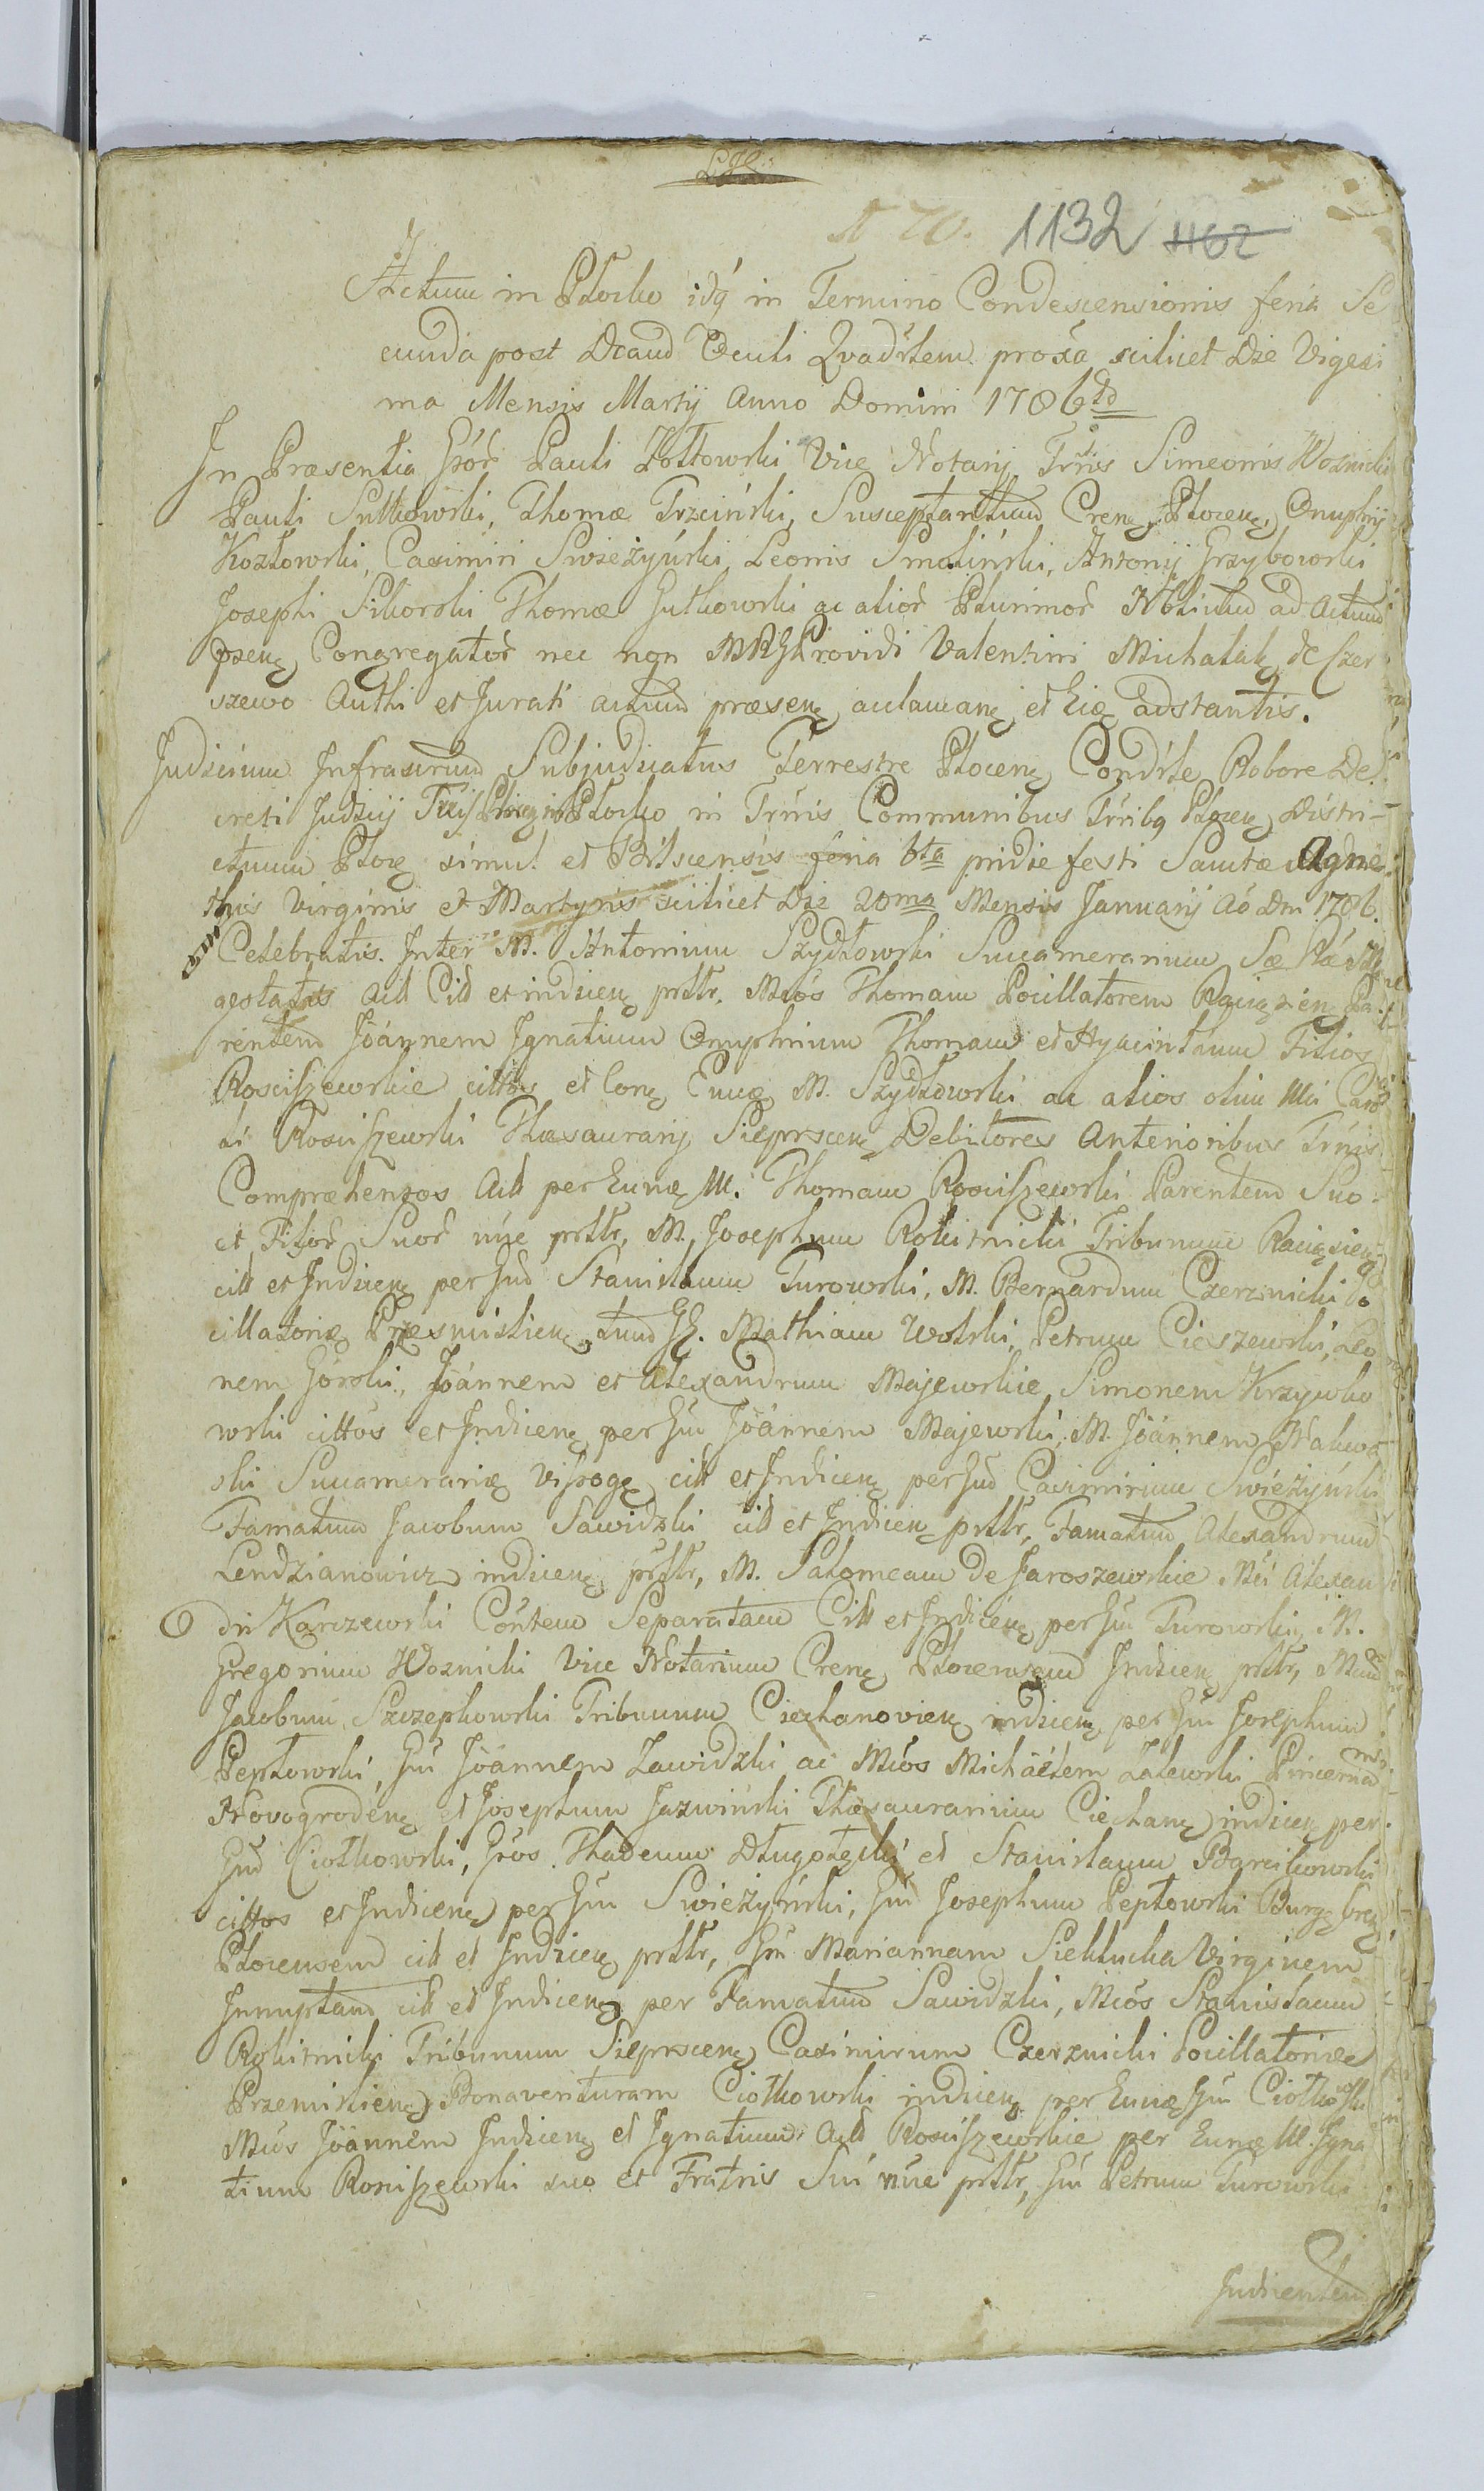 1132 1162
Actum in Płocko idq in Termino Condescensionis feria Se
cunda post Dcam Oculi Qvadrlem proxa scilicet Die Vigesi
ma Mensis Martij Anno Domini 1786to
In Præsentia Gsor Pauli Żołtowski Vice Notarij Trris Simeonis Woznicki
Pauli Sutkowski, Thomæ Trzciński, Susceptantium Cren Plocen, Onuphrij
Kozłowski, Casimiri Swieżyński, Leonis Smoliński, Antonij Grzybowski
Josephi Sikorski Thomæ Gutkowski ac alior Plurimor Nobilium ad Actum
præsen Congregator nec non Providi Valentini Michalak de Czer
szewo Authi et Jurati actum præsen aclaman et adstantis.
Judicium Infrascrum Subjudicatus Terrestre Plocen Condrle Robore De
creti Judicij Trris Plocen in Płocko in Trinis Communibus Trribq Plocen Distri-
ctuum Ploc simul et Bilscensis feria 6ta pridie festi Sanctæ Agne
this Virginis et Martyris scilicet Die 20ma Mensis Januarij Ao Dni 1786.
Celebratis. Inter M. Antonium Szydłowski Succamerarium Sæ Ræ M
aestatis Act Citt et indicen prttr, Mcos Thomam Pocillatorem Raciązien Pa
rentem Joannem Ignatium Onuphrium Thomam et Hyacintum Filios
Rosciszewskie cittos et Con Eunq M. Szydłowski ac alios olim Mci Caro
li Rosciszewski Thæsaurarij Sieprscen Debitores Anterioribus Trinis
Comprehensos Act per Eunq M. Thomam Rosciszewski Parentem Suo
et Filior Suor nie prttr, M. Josephum Rokitnicki Tribunum Raciązien
citt et Indicen per Gsum Stanislaum Turowski, M. Bernardum Czerznicki Po
cillatorie Przesmislien, tum GG. Mathiam Wolski, Petrum Cieszewski, Leo
nem Górski, Joannem et Alexandrum Majewskie Simonem Krzywko
wski cittos et Indicen per Gsum Joannem Majewski, M. Joannem Nakwa
ski Succamerarie Vissog citt et Indicen per Gsum Casimirum Swieżyński
Famatum Jacobum Sawidzki citt et Indicen prttr, Famatum Alexandrum
Lendzianowicz indicen prttr, M. Salomeam de Jaroszewskie Mci Alexan
dri Karczewski Contem Separatam Citt et Indicen per Gsum Turowski, M.
Gregorium Woznicki Vice Notarium Cren Plocensem Indicen prttr, Mcum
Jacobum Szczepkowski Tribunum Ciechanovien indicen per Gsum Josephum
Peptowski, Gsum Joannem Zawidzki ac Mcos Michaëlem Zalewski Pincernam
Novogroden et Josephum Jazwiński Thæsaurarium Ciechan indicen per
Gsum Ciołkowski, Gsos Thadeum Długołęcki et Stanislaum Barcikowski
cittos et Indicen per Gsum Swieżyński, Gsum Josephum Peptowski Burg Cren
Plocensem citt et Indicen prttr, Gsam Mariannam Sieklucka Virginem
Innuptam citt et Indicen per Famatum Sawidzki, Mcos Stanislaum
Rokitnicki Tribunum Sieprscen Casimirum Czerznicki Pocillatorie
Przemislien Bonaventuram Ciołkowski indicen per Eunq Gsum Ciołkowski
Mcos Joannem Indicen et Ignatium Act Rosciszewskie per Eunq M. Igna
tium Rosciszewski suo et Fratris Sui nie prttr, Gsum Petrum Turowski
Indicentem